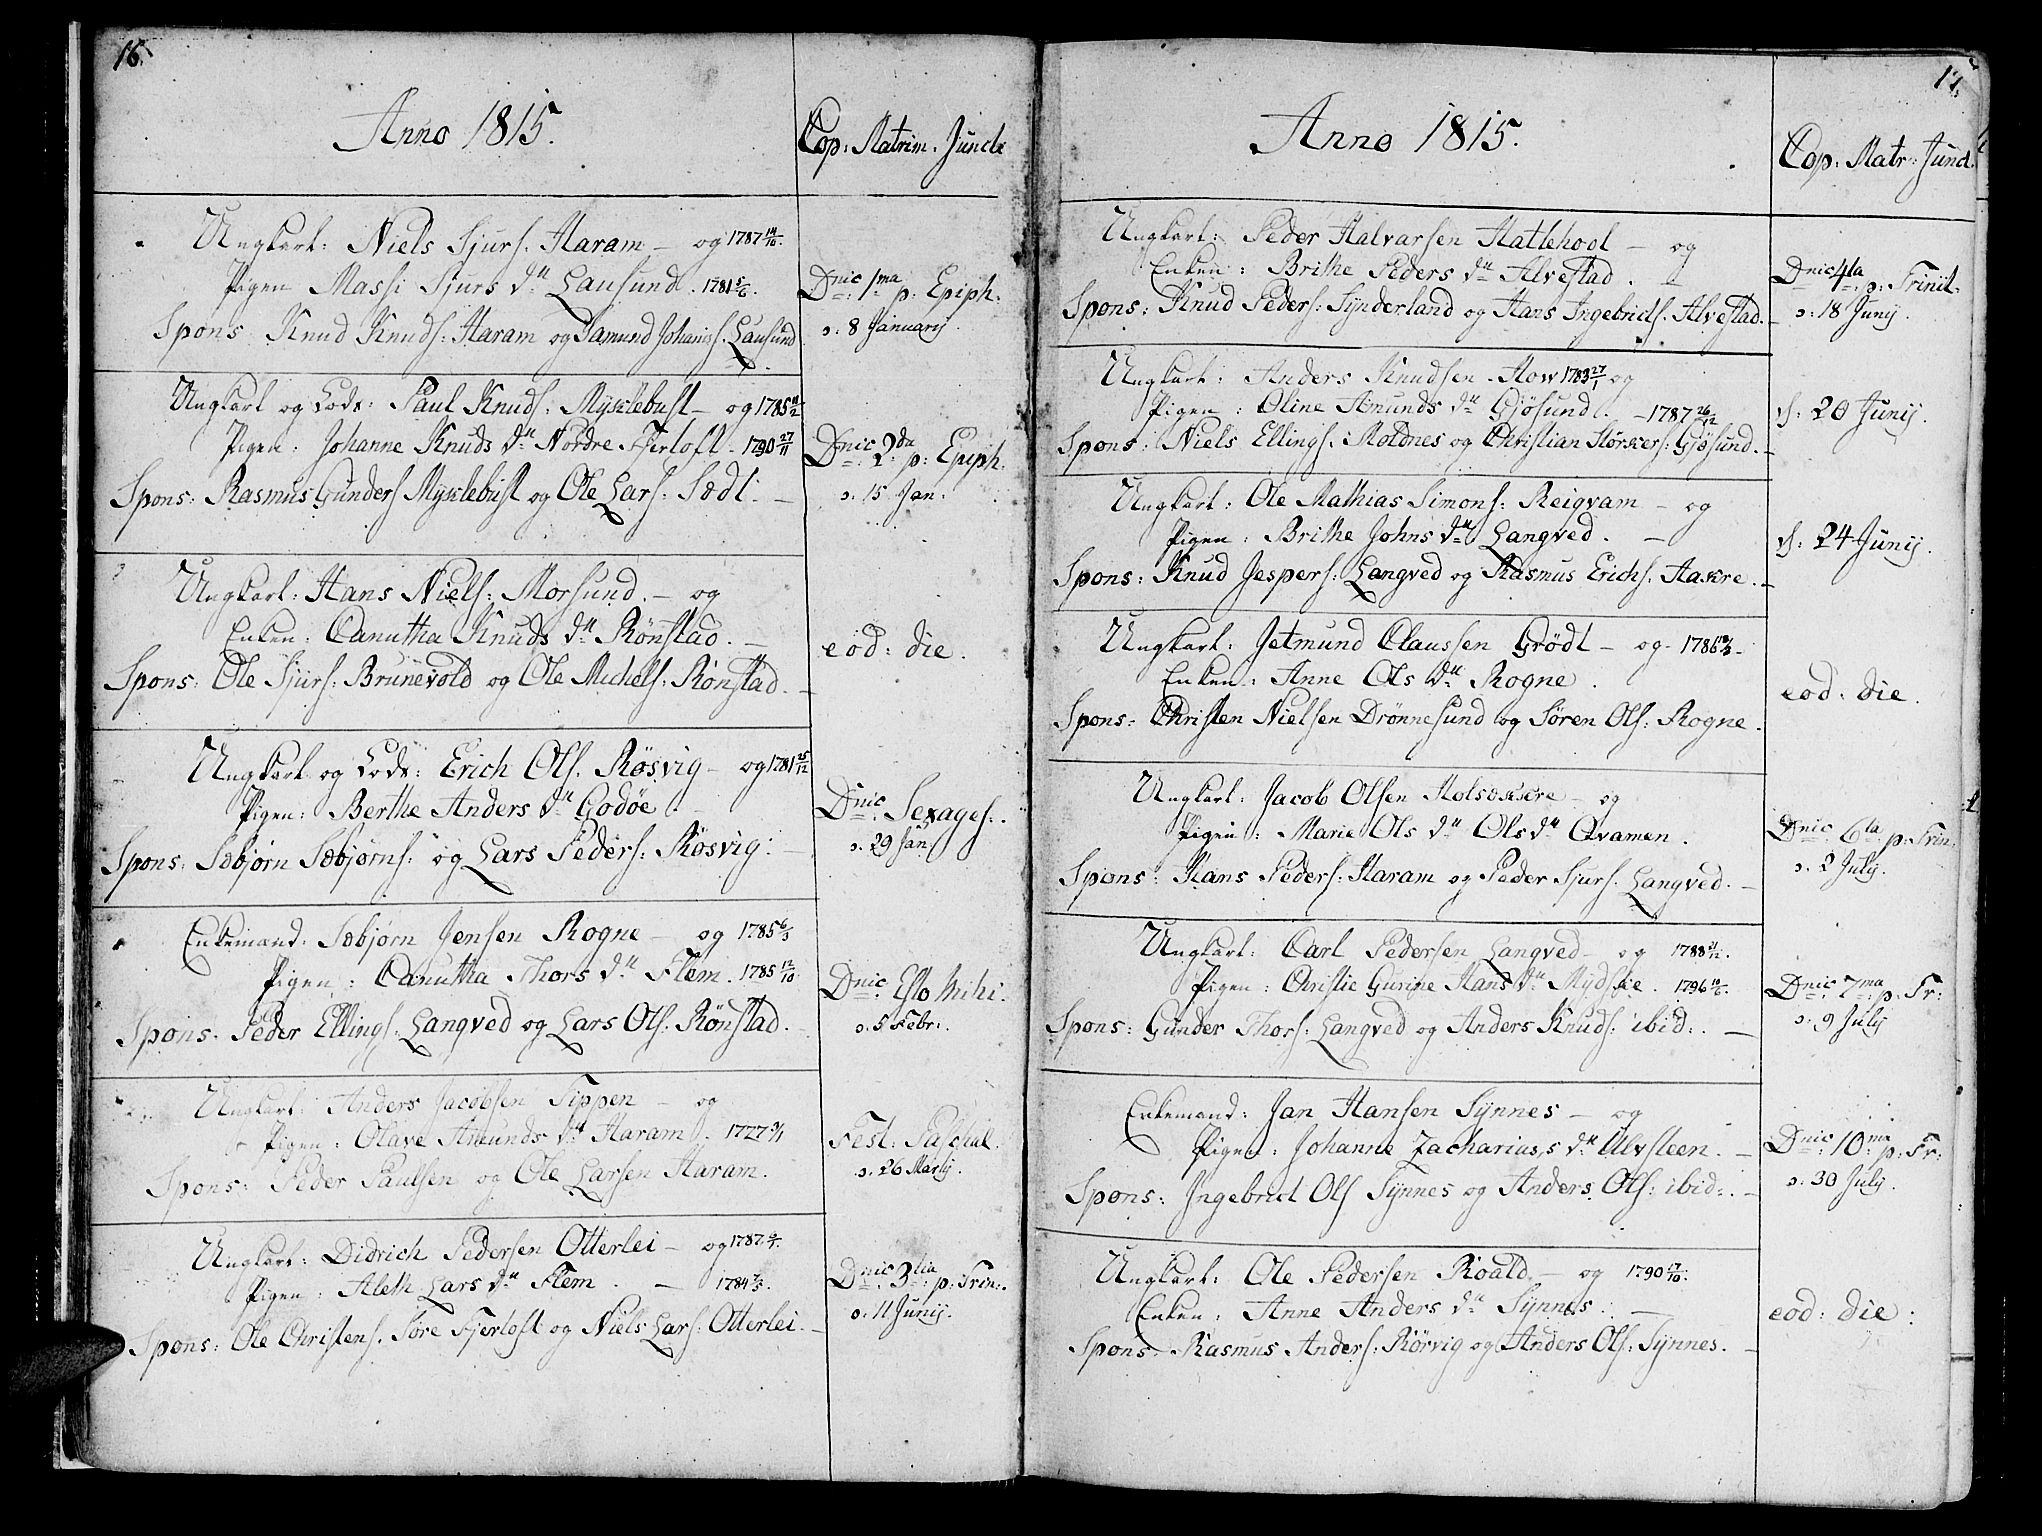 16.
Anno 1815.
Cop: Matrim. Juncti
Ungkarl: Niels Sjurs. Haram — og 1787 14/10.
Pigen Massi Sjurs dtr Lausund. 1781 5/6.
Spons: Knud Knuds: Haram og Samund Johaniss. Lausund.
Dnic: 1ma p: Epiph:
d. 8 January.
Ungkarl og Lods: Paul Knuds: Myklebust — og 1785 11/2
Pigen: Johanne Knuds dtr Nordre Fjerloft. 1790 27/11
Spons: Rasmus Gunders Myklebust og Ole Lars: Sædt: —
Dnic: 2da p: Epiph:
d. 15 Jan:
Ungkarl: Hans Niels: Morsund. — og
Enken: Canutha Knuds dtr Rønstad. —
Spons: Ole Sjurs: Brunevold og Ole Michels: Rønstad. —
eod: die.
Ungkarl og Lods: Erich Ols. Røsvig — og 1781 25/12
Pigen: Berthe Anders dtr Godøe.
Spons: Sæbjørn Sæbjørns: og Lars Peders: Røsvig: —
Dnic: Sexages:.
d. 29 Jan:
Enkemand: Sæbjørn Jensen Rogne — og 1785 6/3
Pigen: Canutha Thors dtr Flem. 1785 12/10.
Spons. Peder Ellings: Langved og Lars Ols: Rønstad. —
Dnic: Esto Mihi.
d. 5 Febr:.
Ungkarl: Anders Jacobsen Tippen — og
Pigen: Olave Amunds dtr Haram. 1727
Spons: Peder Paulsen og Ole Larsen Haram.
Fest: Paschal.
d. 26 Martij.
Ungkarl: Didrich Pedersen Otterlei — og 1787
Pigen: Aleth Lars dtr Flem. — 1784
Spons: Ole Christens. Søre Fjerloft og Niels Lars: Otterlei. —
Dnic: 3tia p: Trin:.
d. 11 Junij.
17.
Anno 1815.
Cop: Matr: Junct.
Ungkarl: Peder Halvarsen Hatlehool — og
Enken: Brithe Peders dtr Alvestad. —
Spons: Knud Peders: Synderland og Hans Ingebricts. Alvestad. —
Dnic: 4ta p: Trinit:
d. 18 Junij.
Ungkarl: Anders Knudsen How 1783 27/1 og
Pigen: Oline Amunds dtr Gjøsund. — 1787 26/12
Spons: Niels Ellings. Moldnes og Christian Kørners: Gjøsund. —
d: 20 Junij.
Ungkarl: Ole Mathias Simons: Reigvam — og
Pigen: Brithe Johns dtr Langved. —
Spons: Knud Jespers: Langved og Rasmus Erichs. Hakre. —
d: 24 Junij.
Ungkarl: Jetmund Claussen Grødt — og 1786
Enken: Anne Ols dtr Rogne.
Spons: Christen Nielsen Drønnesund og Søren Ols: Rogne.
eod: die.
Ungkarl: Jacob Olsen Holsækre — og
Pigen: Marie Ols dtr Ols dtr Qvamen.
Spons: Hans Peders: Haram og Peder Sjurs. Langved. —
Dnic: 6ta p: Trin:
d. 2 July.
Ungkarl: Carl Pedersen Langved — og 1788 21/12.
Pigen: Christie Gurine Hans dtr Mydske. 1796 10/6.
Spons: Gunder Thors: Langved og Anders Knuds: ibid:. —
Dnic: 7ma p: Tr:
d. 9 July
Enkemand: Jan Hansen Synnes — og
Pigen: Johanne Zacharias,s dtr Ulvsteen. —
Spons: Ingebrict Ols Synnes og Anders Ols: ibid:. —
Dnic: 10ma p: Tr:
d. 30 July.
Ungkarl: Ole Pedersen Roald — og 1790 17/10.
Enken: Anne Anders dtr Synnes. —
Spons: Rasmus Anders: Rørvig og Anders Ols: Synnes. —
eod: die: